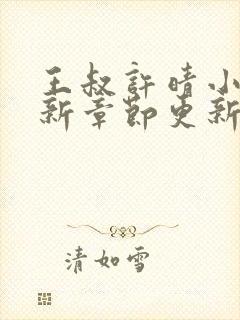 王叔許晴小
新章節更新
清如雪